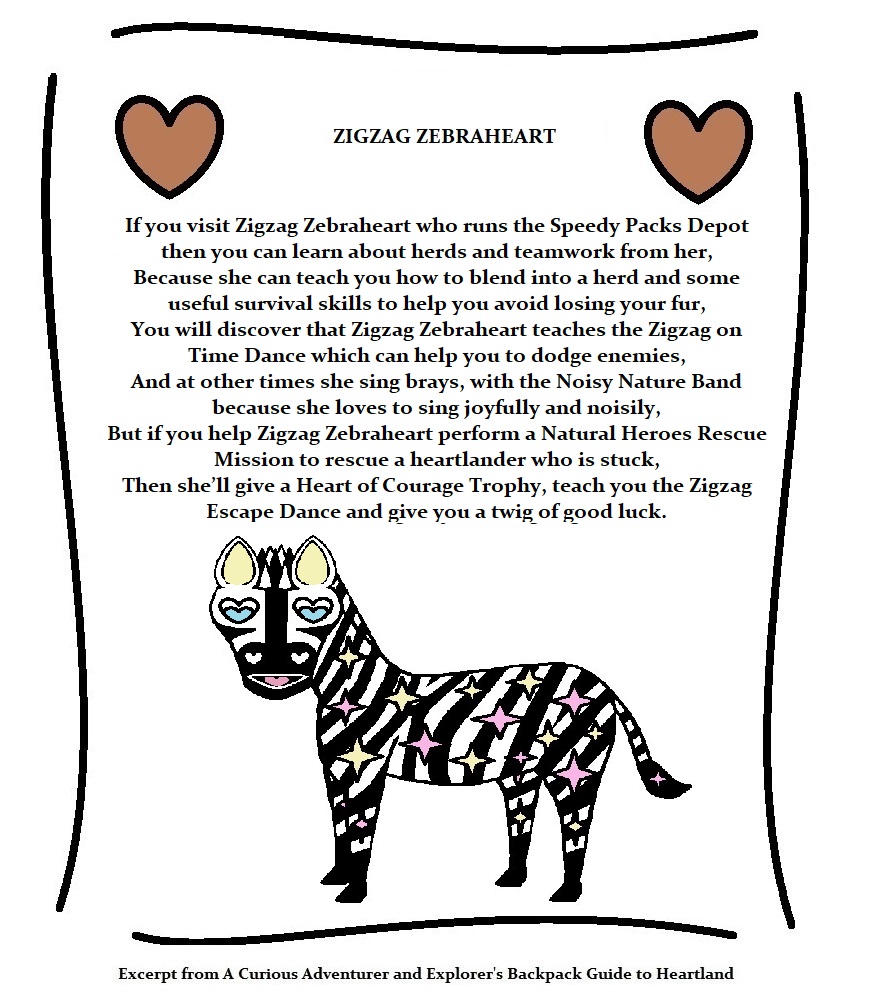 ZIGZAG ZEBRAHEART
If you visit Zigzag Zebraheart who runs the Speedy Packs Depot
then you can learn about herds and teamwork from her,
Because she can teach you how to blend into a herd and some
useful survival skills to help you avoid losing your fur,
You will discover that Zigzag Zebraheart teaches the Zigzag on
Time Dance which can help you to dodge enemies,
And at other times she sing brays, with the Noisy Nature Band
because she loves to sing joyfully and noisily,
But if you help Zigzag Zebraheart perform a Natural Heroes Rescue
Mission to rescue a heartlander who is stuck,
Then she’ll give a Heart of Courage Trophy, teach you the Zigzag
Escape Dance and give you a twig of good luck.
Excerpt from A Curious Adventurer and Explorer's Backpack Guide to Heartland